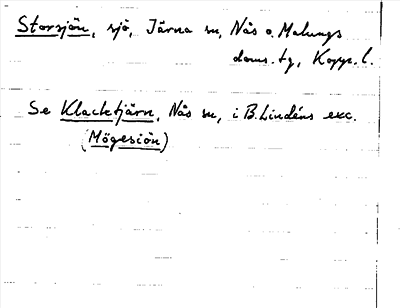 Storsjön, sjö, Järna sn, Nås o. Malungs
doms. tg, Kopp. l.
Se Klacktjärn, Nås sn, i B. Lindéns exc.
(Mögesjön)